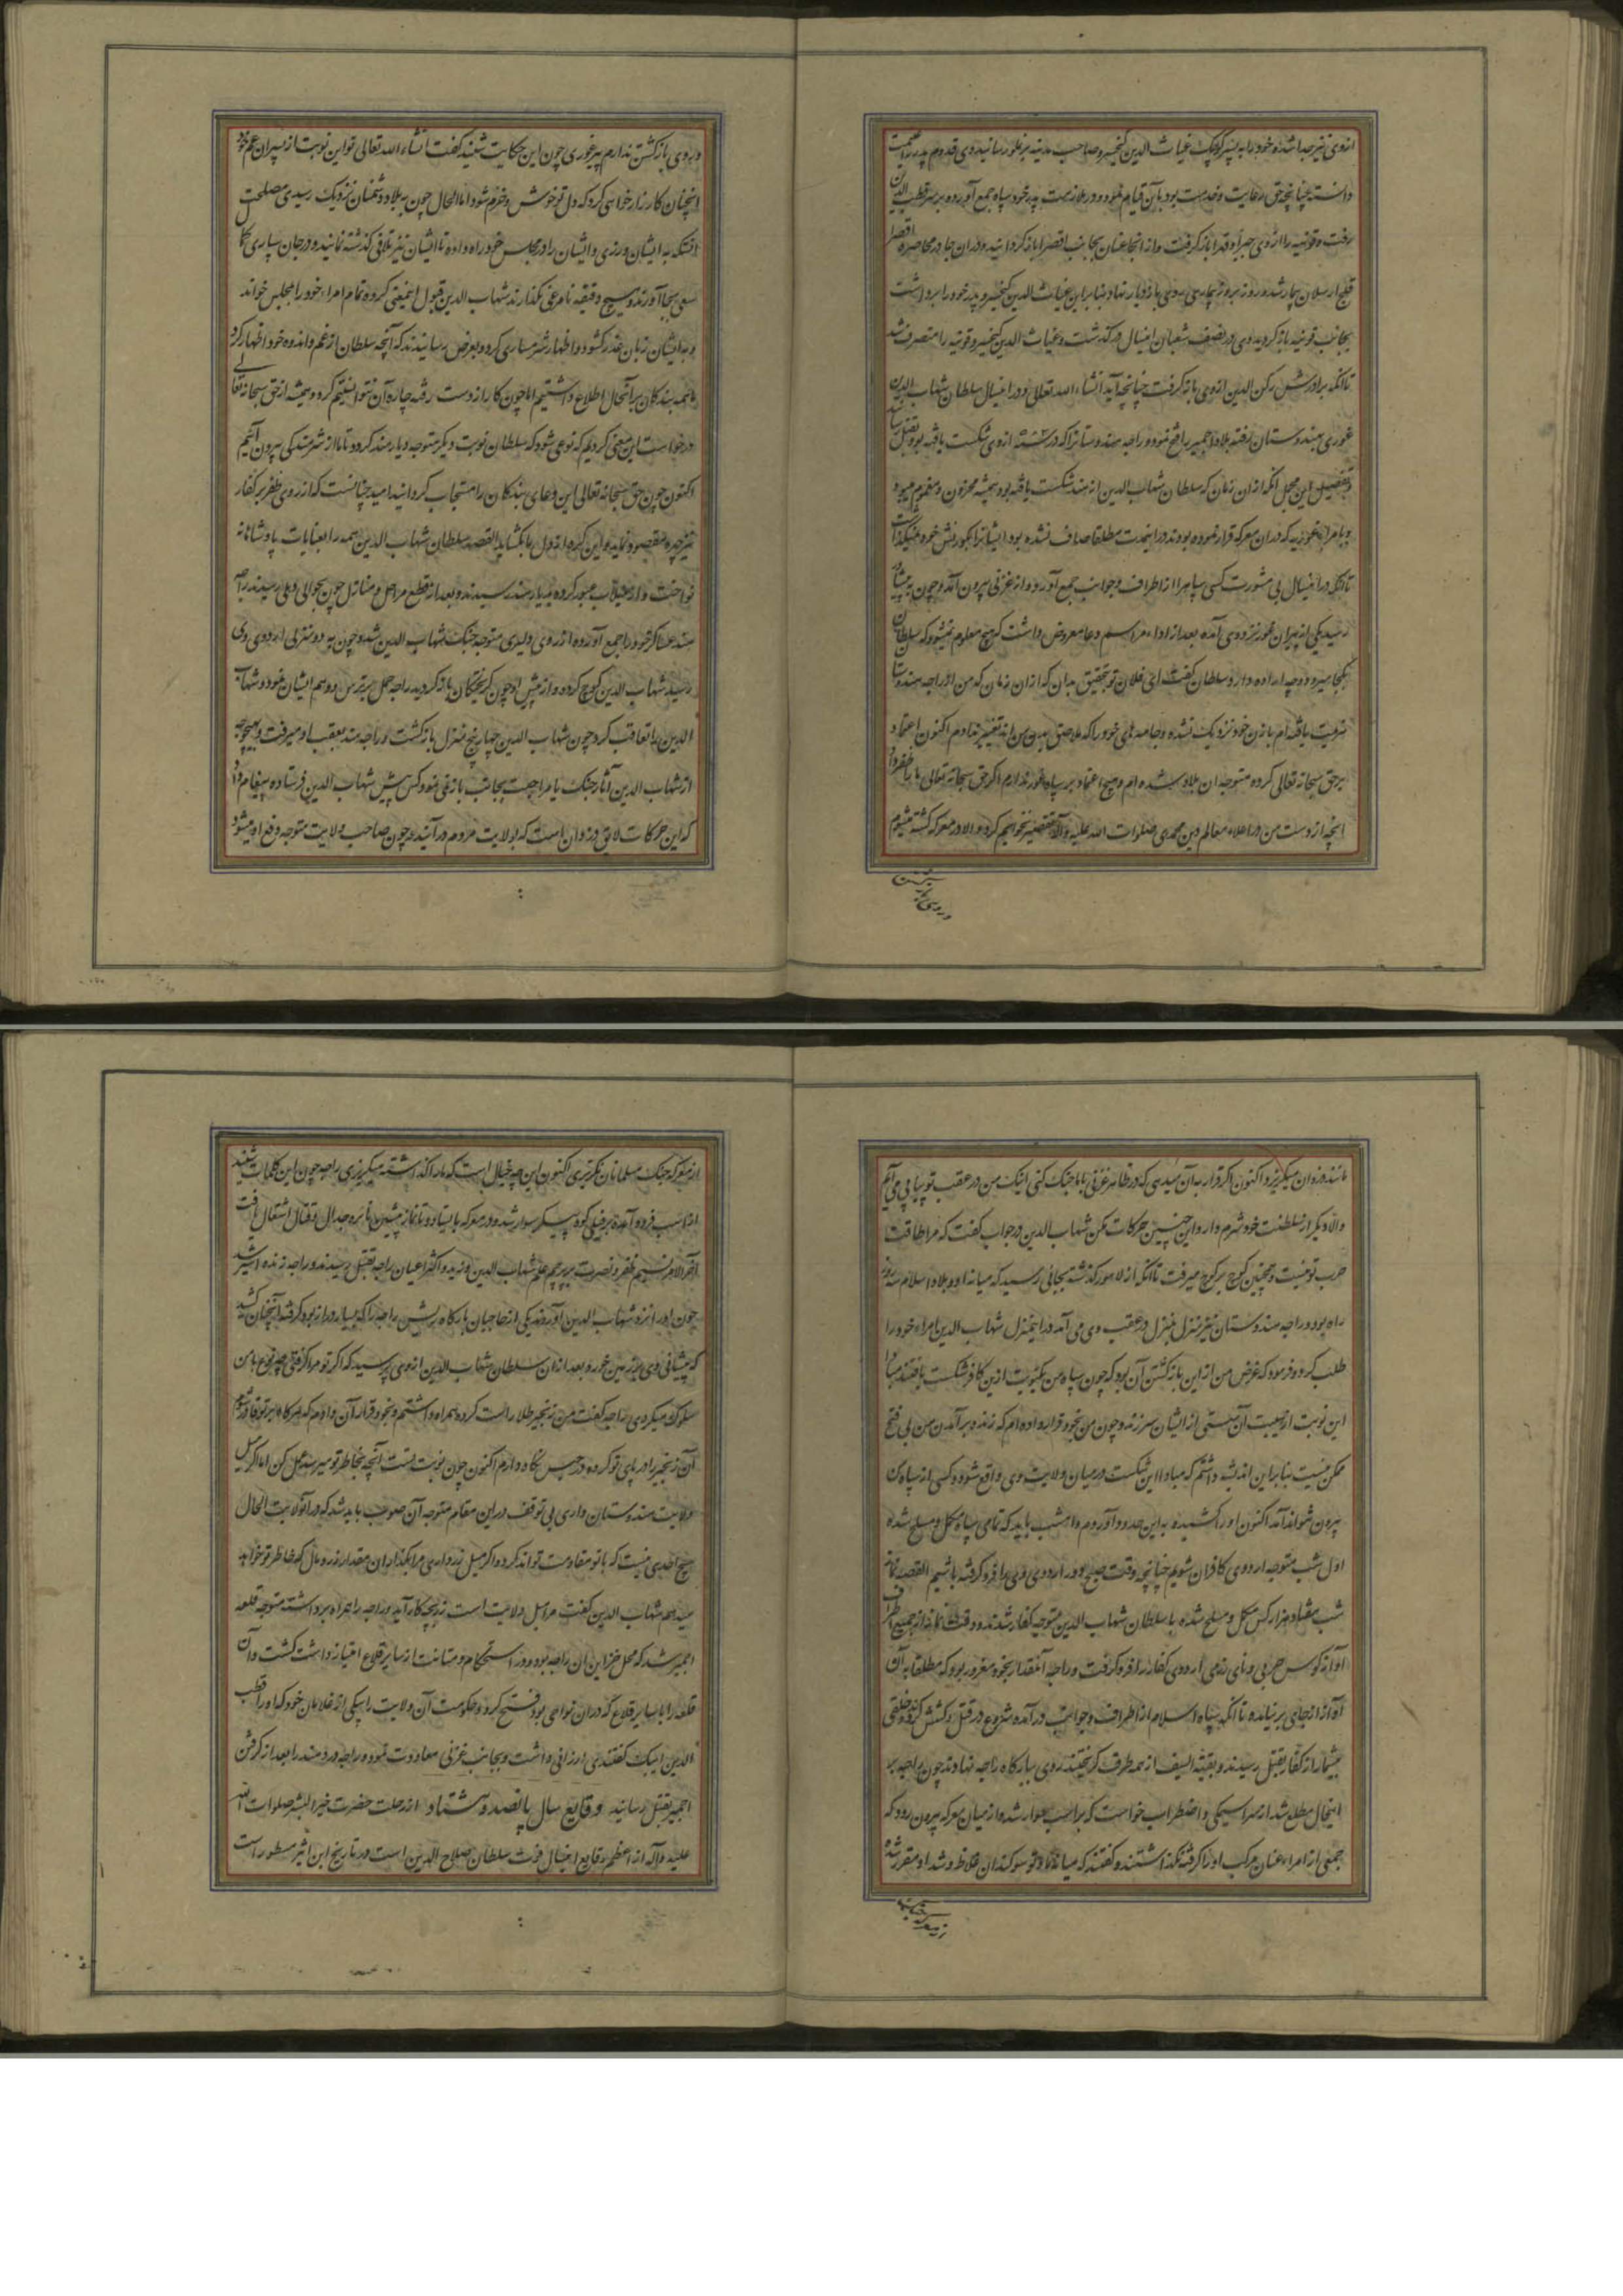 ازوی نیز جدا شده خود را به پسر کوچک غیاث الدین کیخسرو صاحب مدینه برغلو رسانید وی قدوم پدر را غنیمت
دانسته چنانچه حق رعایت و خدمت بود بآن قیام نموده و در ملازمت پدر خود سپاه جمع آورده بر سر قطب الدین
رفت و قونیه را از وی جبراً و قهراً باز گرفت و از انجا عنان بجانب اقصرا باز گردانید و در ان جا در محاصره اقصرا
قلج ارسلان بیمار شد و روز بروز بیماری روی بازدیاد نهاد بنابراین غیاث الدین کیخسرو پدر خود را برداشت
بجانب قونیه باز گردید وی در نصف شعبان اینسال درگذشت و غیاث الدین کیخسرو قونیه را متصرف شد
تا آنکه برادرش رکن الدین ازوی باز گرفت چنانچه آید انشاء الله تعالی و در اینسال سلطان شهاب الدین
غوری بهندوستان رفته بلاد اجمیر را فتح نموده و راجه هندوستان را که در سنه ازوی شکست یافته بود بقتل رسانید
و تفصیل این مجمل آنکه از ان زمان که سلطان شهاب الدین از هند شکست یافته بود همیشه محزون و مغموم میبود
و با امراء غوریه که در ان معرکه فرار نموده بودند در اینمدت مطلقا صاف نشده بود ایشانرا بکورنش خود نمیگذاشت
تا آنکه در اینسال بی مشورت کسی سپاه را از اطراف و جوانب جمع آورده و از غزنی بیرون آمد و چون به پیشاور
رسید یکی از پیران غور نزد وی آمده بعد از اداء مراسم دعا معروض داشت که هیچ معلوم نمیشود که سلطان
بکجا میرود و چه اراده دارد سلطان گفت ای فلان تو تحقیق بدان که از ان زمان که من از راجه هندوستان
هزیمت یافته ام با زن خود نزدیک نشده و جامه های خود را که ملاصق بدن من اند تغییر نداده ام اکنون اعتماد
بر حق سبحانه تعالی کرده متوجه ان بلاد شده ام و هیچ اعتماد بر سپاه غور ندارم اگر حق سبحانه تعالی ما را ظفر داد
انچه از دست من در اعلاء معالم دین محمدی صلوات الله علیه و آله تقصیر نخواهم کرد و الا در معرکه کشته میشوم
و روی بازگشتن ندارم پیر غوری چون این حکایت شنید گفت انشاء الله تعالی تو این نوبت از پسران عم خود
انچنان کارزار خواهی کرد که دل تو خوش و خرم شود اما الحال چون به بلاد دشمنان نزدیک رسیدی مصلحت
انستکه به ایشان ورزی و ایشان را در مجلس خود راه داده تا ایشان نیز تلافی گذشته نمایند و در جان سپاری کمال
سعی بجا آورند و هیچ دقیقه نامرعی نگذارند شهاب الدین قبول اینمعنی کرده تمام امراء خود را بمجلس خواند
و به ایشان زبان عذر گشود و اظهار شرمساری کرد و بعرض رسانیدند که آنچه سلطان از غم و اندوه خود اظهار کرد
ما همه بندگان بر آنحال اطلاع داشتیم اما چون کار از دست رفته چاره آن نتوانستیم کرد و همیشه از حق سبحانه تعالی
درخواست این معنی کردیم که نوعی شود که سلطان نوبت دیگر متوجه دیار هند گردد تا ما از شرمندگی بیرون آئیم
اکنون چون حق سبحانه تعالی این دعای بندگان را مستجاب گردانید امید چنانست که از روی ظفر بر کفار
نیز چهره مقصود نماید و این گره از دل ما بگشاید القصه سلطان شهاب الدین همه را بعنایات پادشاهانه
نواخت و از نیلاب عبور کرده بدیار هند رسیدند و بعد از قطع مراحل و منازل چون بحوالی دهلی رسیدند راجه
هند عساکر خود را جمع آورده از روی دلیری متوجه جنگ شهاب الدین شد و چون به دو منزلی اردوی وی
رسید شهاب الدین کوچ کرده و از پیش او چون گریختگان باز گردید راجه حمل بر ترس و وهم ایشان نمود و شهاب
الدین را تعاقب کرد چون شهاب الدین چهار پنج منزل بازگشت و راجه هند بعقب او میرفت و بهیچوجه
از شهاب الدین آثار جنگ یا مراجعت بجانب باز نمی نمود کس پیش شهاب الدین فرستاده پیغام داد
که این حرکات لایق دزدان است که بولایت مردم درآیند و چون صاحب ولایت متوجه دفع او میشود
مانند دزدان میگریزد اکنون اگر قرار به آن میدهی که در ظاهر غزنی با ما جنگ کنی اینک من در عقب تو پیاپی می آیم
والا دیگر از سلطنت خود شرم دار و این چنین حرکات مکن شهاب الدین در جواب گفت که مرا طاقت
حرب تو نیست و همچنین کوچ بر کوچ میرفت تا آنکه از لاهور گذشته بجائی رسید که میانه او و بلاد اسلام سه روزه
راه بود و راجه هندوستان نیز منزل بمنزل در عقب وی می آمد در اینمنزل شهاب الدین امراء خود را
طلب کرد و فرمود که غرض من از این بازگشتن آن بود که چون سپاه من یکنوبت ازین کافر شکست یافتند مبادا
این نوبت از هیبت آن سستی از ایشان سر زند و چون من بخود قرار داده ام که زنده برآمدن من بی فتح
ممکن نیست بنابراین اندیشه داشتم که مبادا این شکست در میان ولایت وی واقع شود و کسی از سپاه من
بیرون نتواند آمد اکنون او را کشیده به این حدود آوردم و امشب باید که تمامی سپاه مکمل و مسلح شده
اول شب متوجه اردوی کافران شویم چنانچه وقت صبح دور اردوی وی را فرو گرفته باشیم القصه نماز
شب هفتاد هزار کس مکمل و مسلح شده با سلطان شهاب الدین متوجه کفار شدند و وقت نماز از جمیع اطراف
آوازه کوس حربی و نای رزمی اردوی کفار را فرو گرفت و راجه آنقدار بخود مغرور بود که مطلقا به آن
آواز از جای برنیامده تا آنکه سپاه اسلام از اطراف و جوانب درآمده شروع در قتل و کشش کرده خلقی
بیشمار از کفار بقتل رسیدند و بقیة السیف از همه طرف گریخته روی ببارگاه راجه نهادند چون راجه بر
اینحال مطلع شد از سراسیمگی و اضطراب خواست که بر اسب سوار شده از میان معرکه بیرون رود که
جمعی از امراء عنان مرکب او را گرفته نگذاشتند و گفتند که میانه ما و تو سوگندان غلاظ و شداد مقرر شده
از معرکه جنگ مسلمانان نگریزی اکنون این چه خیال است که ما را گذاشته میگریزی راجه چون این کلمات شنید
از اسب فرود آمده بر فیلی کوه پیکر سوار شده و در معرکه بایستاد و تا نماز پیشین نائره جدال و قتال اشتعال یافت
آخر الامر نسیم ظفر و نصرت بر پرچم علم شهاب الدین وزید و اکثر اعیان راجه بقتل رسیدند و راجه زنده اسیر شد
چون او را نزد شهاب الدین آوردند یکی از حاجبان بارگاه ریش راجه را که بسیار دراز بود گرفته آنچنان کشید
که پیشانی وی بر زمین خورد و بعد از ان سلطان شهاب الدین ازوی پرسید که اگر تو مرا گرفتی چه نوع با من
سلوک میکردی راجه گفت من زنجیر طلا راست کرده همراه داشتم و بخود قرار آن داده که هرگاه بر تو قادر شوم
آن زنجیر را در پای تو کرده در حبس نگاه دارم اکنون چون نوبت تست آنچه بخاطر تو میرسد عمل کن اما اگر میل
ولایت هندوستان داری بی توقف در این مقام متوجه آن صوب باید شد که در آنولایت الحال
هیچ احدی نیست که با تو مقاومت تواند کرد و اگر میل زر داری مرا بگذار ان مقدار زر و مال که خاطر تو خواهد
میدهم شهاب الدین گفت مرا میل ولایت است زر بچه کار آید و راجه را همراه برداشته متوجه قلعه
اجمیر شد که محل خزاین ان راجه بود و در استحکام و متانت از سایر قلاع امتیاز داشت گشت و آن
قلعه را با سایر قلاع که در ان نواحی بود فتح کرد و حکومت آن ولایت را بیکی از غلامان خود که او را قطب
الدین ایبک گفتندی ارزانی داشت و بجانب غزنی معاودت نموده راجه دردمند را بعد از گرفتن
اجمیر بقتل رسانید وقایع سال پانصد و هشتاد از رحلت حضرت خیر البشر صلوات الله
علیه و آله از اعظم وقایع اینسال فوت سلطان صلاح الدین است در تاریخ ابن اثیر مسطور است